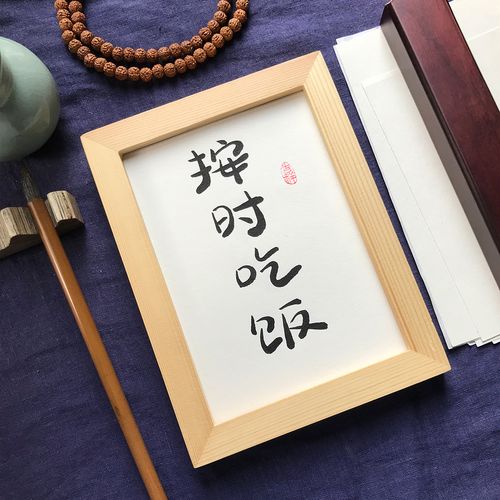 按时吃饭